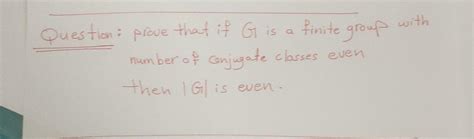 Question: prove that if G is a finite group with
number of conjugate classes even
then |G| is even.